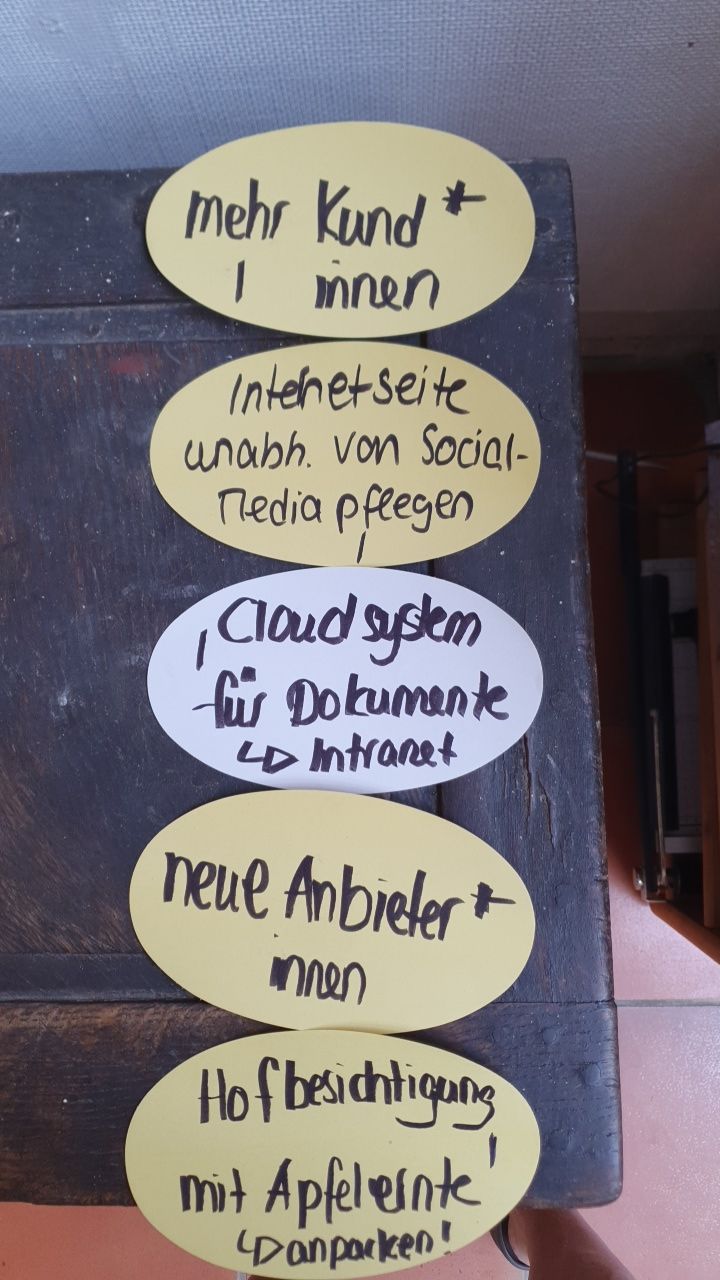 mehr Kund*
innen
Internetseite
unabh. von Social-
Media pflegen
Cloudsystem
für Dokumente
↳ Intranet
neue Anbieter*
innen
Hofbesichtigung
mit Apfelernte
↳ anpacken!